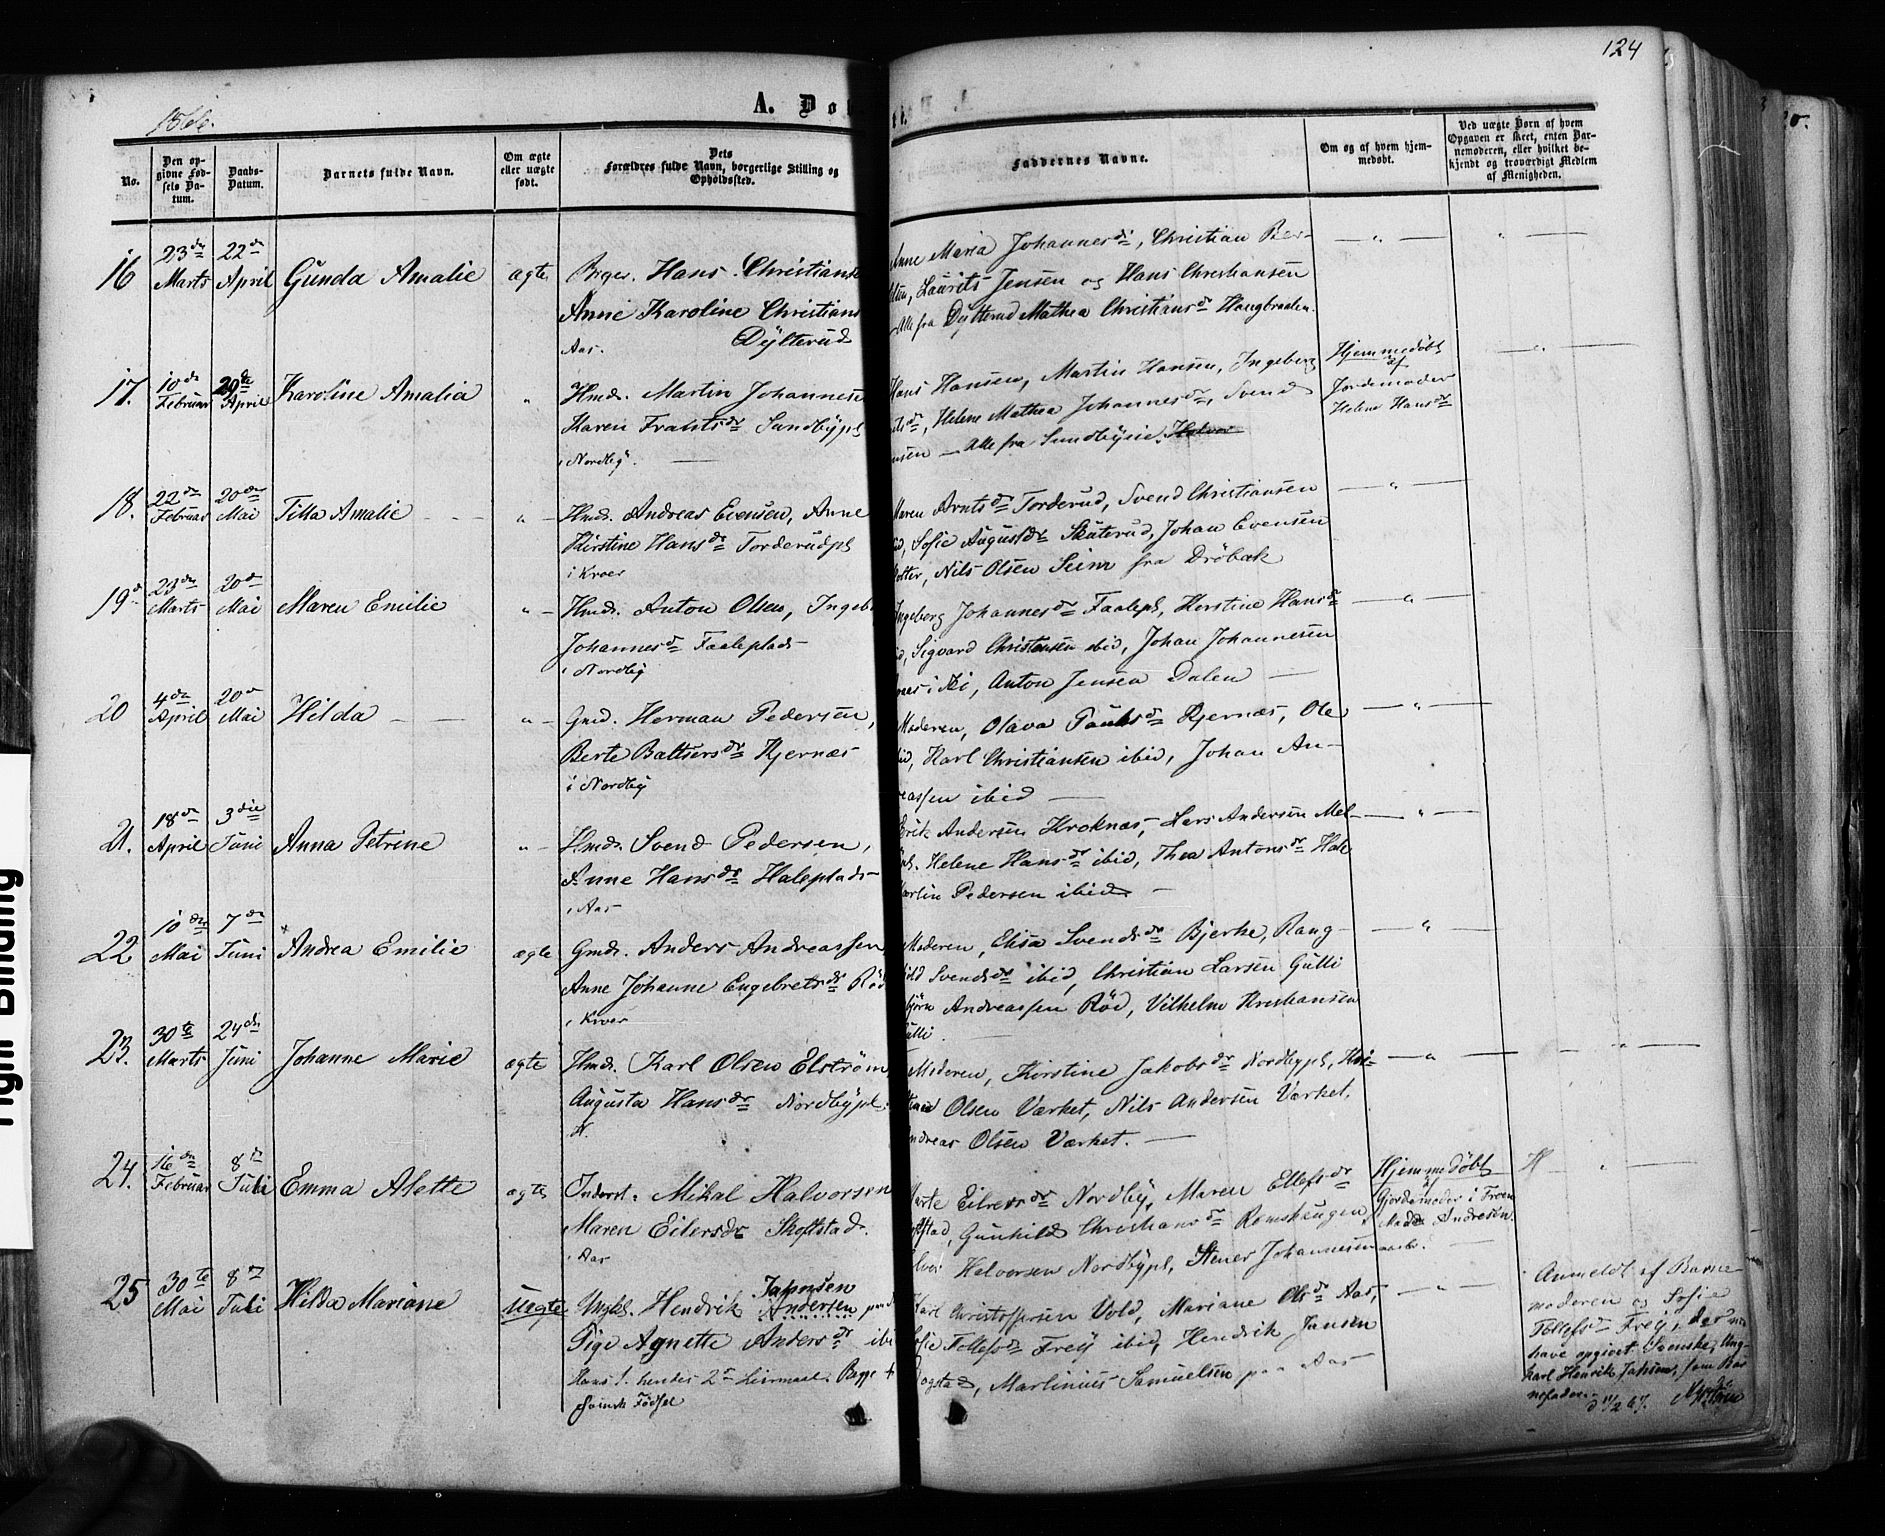 124
1866.
A. Døb
No.
Den op-
givne Fød-
sels Da-
tum.
Daabs-
Datum.
Barnets fulde Navn.
Om ægte
eller uægte
født.
Dets
Forældres fulde Navn, borgerlige Stilling og
Opholdssted.
Faddernes Navne.
Om og af hvem hjem-
medøbt.
Ved uægte Børn af hvem
Opgaven er skeet, enten Bar-
nemoderen, eller hvilket be-
kjendt og troværdigt Medlem
af Menigheden.
16 23de Marts 22de April Gunda Amalie ægte
Hans Christianse
Anne Karoline Christians
Dÿlterud
Aas.
Anne Maria Johannesdr, Christian Ber-
Laurits Jensen og Hans Christiansen
Alle fra Dÿlterud Mathea Christiansdr Haugbraaten.
17. 10de Februar 20de April Karoline Amalia "
Hmd. Martin Johannese
Karen Frantsdr Sundbÿpl
i Nordbÿ.
Hans Hansen, Martin Hansen, Ingeborg
Helene Mathea Johannesdr, Svend
nsen — Alle fra Sundbÿeie. Halvor
Hjemmedøbt
af
Jordemoder
Helene Hansdr
18. 22de Februar 20de Mai Tilla Amalie "
Hmd. Andreas Evensen, Anne
Kirstine Hansdr Torderudpl
i Kroer
Maren Arntsdr Torderud, Svend Christiansen
Sofie Augustdr Skuterud, Johan Evensen
Nils Olsen Seim fra Drøbak
19. 23de Marts 20de Mai Maren Emilie "
Hmd. Anton Olsen, Ingeb
Johannesdr Faaleplads
i Nordbÿ
Ingeborg Johannesdr Faalepl, Kerstine Hansdr
Sigvard Christensen ibid, Johan Johannesen
næs i Aas, Anton Jensen Dalen
20 4de April 20de Mai Hilda "
Gmd. Herman Pedersen,
Berte Baltsersdr Kjernæs
i Nordbÿ
Moderen, Olava Paulsdr Kjernæs, Ole
Karl Christiansen ibid, Johan An-
reassen ibid
21. 18de April 3die Juni Anna Petrine "
Hmd. Svend Pedersen,
Anne Hansdr Haleplads
i Aas
Erik Andersen Kroknæs, Lars Andersen Mel-
Helene Hansdr ibid, Thea Antonsdr Hale
Martin Pedersen ibid
22 10de Mai 7de Juni Andrea Emilie ægte
Gmd. Anders Andreassen,
Anne Johanne Engebretsdr Rød
i Kroer
Moderen, Elisa Svendsdr Bjerke, Rang-
hild Svendsdr ibid, Christian Larsen Gulli
bjørn Andreassen Rød, Vilhelm Kristiansen
Gulli.
23. 30te Marts 24de Juni Johanne Marie ægte
Hmd. Karl Olsen Elstrøm
Augusta Hansdr Nordbÿpl.
Moderen, Kirstine Jakobsdr Nordbÿpl, Kri-
Olsen Værket, Nils Andersen Værket,
Andreas Olsen Værket.
24. 16de Februar 8de Juli Emma Alette ægte
Inderst. Mikal Halvorsen
Maren Eilersdr Skoftstad.
i Aas
Marte Eilersdr Nordbÿ, Maren Ellefsdr
Gunhild Christiansdr Romshaugen
Halvorsen Nordbÿpl, Stener Johannesen
Hjemmedøbt
af
Gjordemoder i Froen
Madm Andresen.
25 30te Mai 8de Juli Hilda Mariane uægte
Ungkl. Hendrik Jahnsen Andersen
Pige Agnette Andersdr ibi
Hans 1. hendes 2de Leiermaal. Begge
Svensk Fødsel
Karl Christoffersen Vold, Mariane Olsdr Aas,
Sofie Tollefsdr Freÿ ibid, Hendrik Jansen
Rogstad, Martinius Samuelsen paa Aas
Anmeldt af Barne-
moderen og Sofie
Tollefsdr Freÿ, der
have opgivet Svenske Ung-
karl Henrik Jahnsen, som Bar-
nefader.
d 11/2 67.